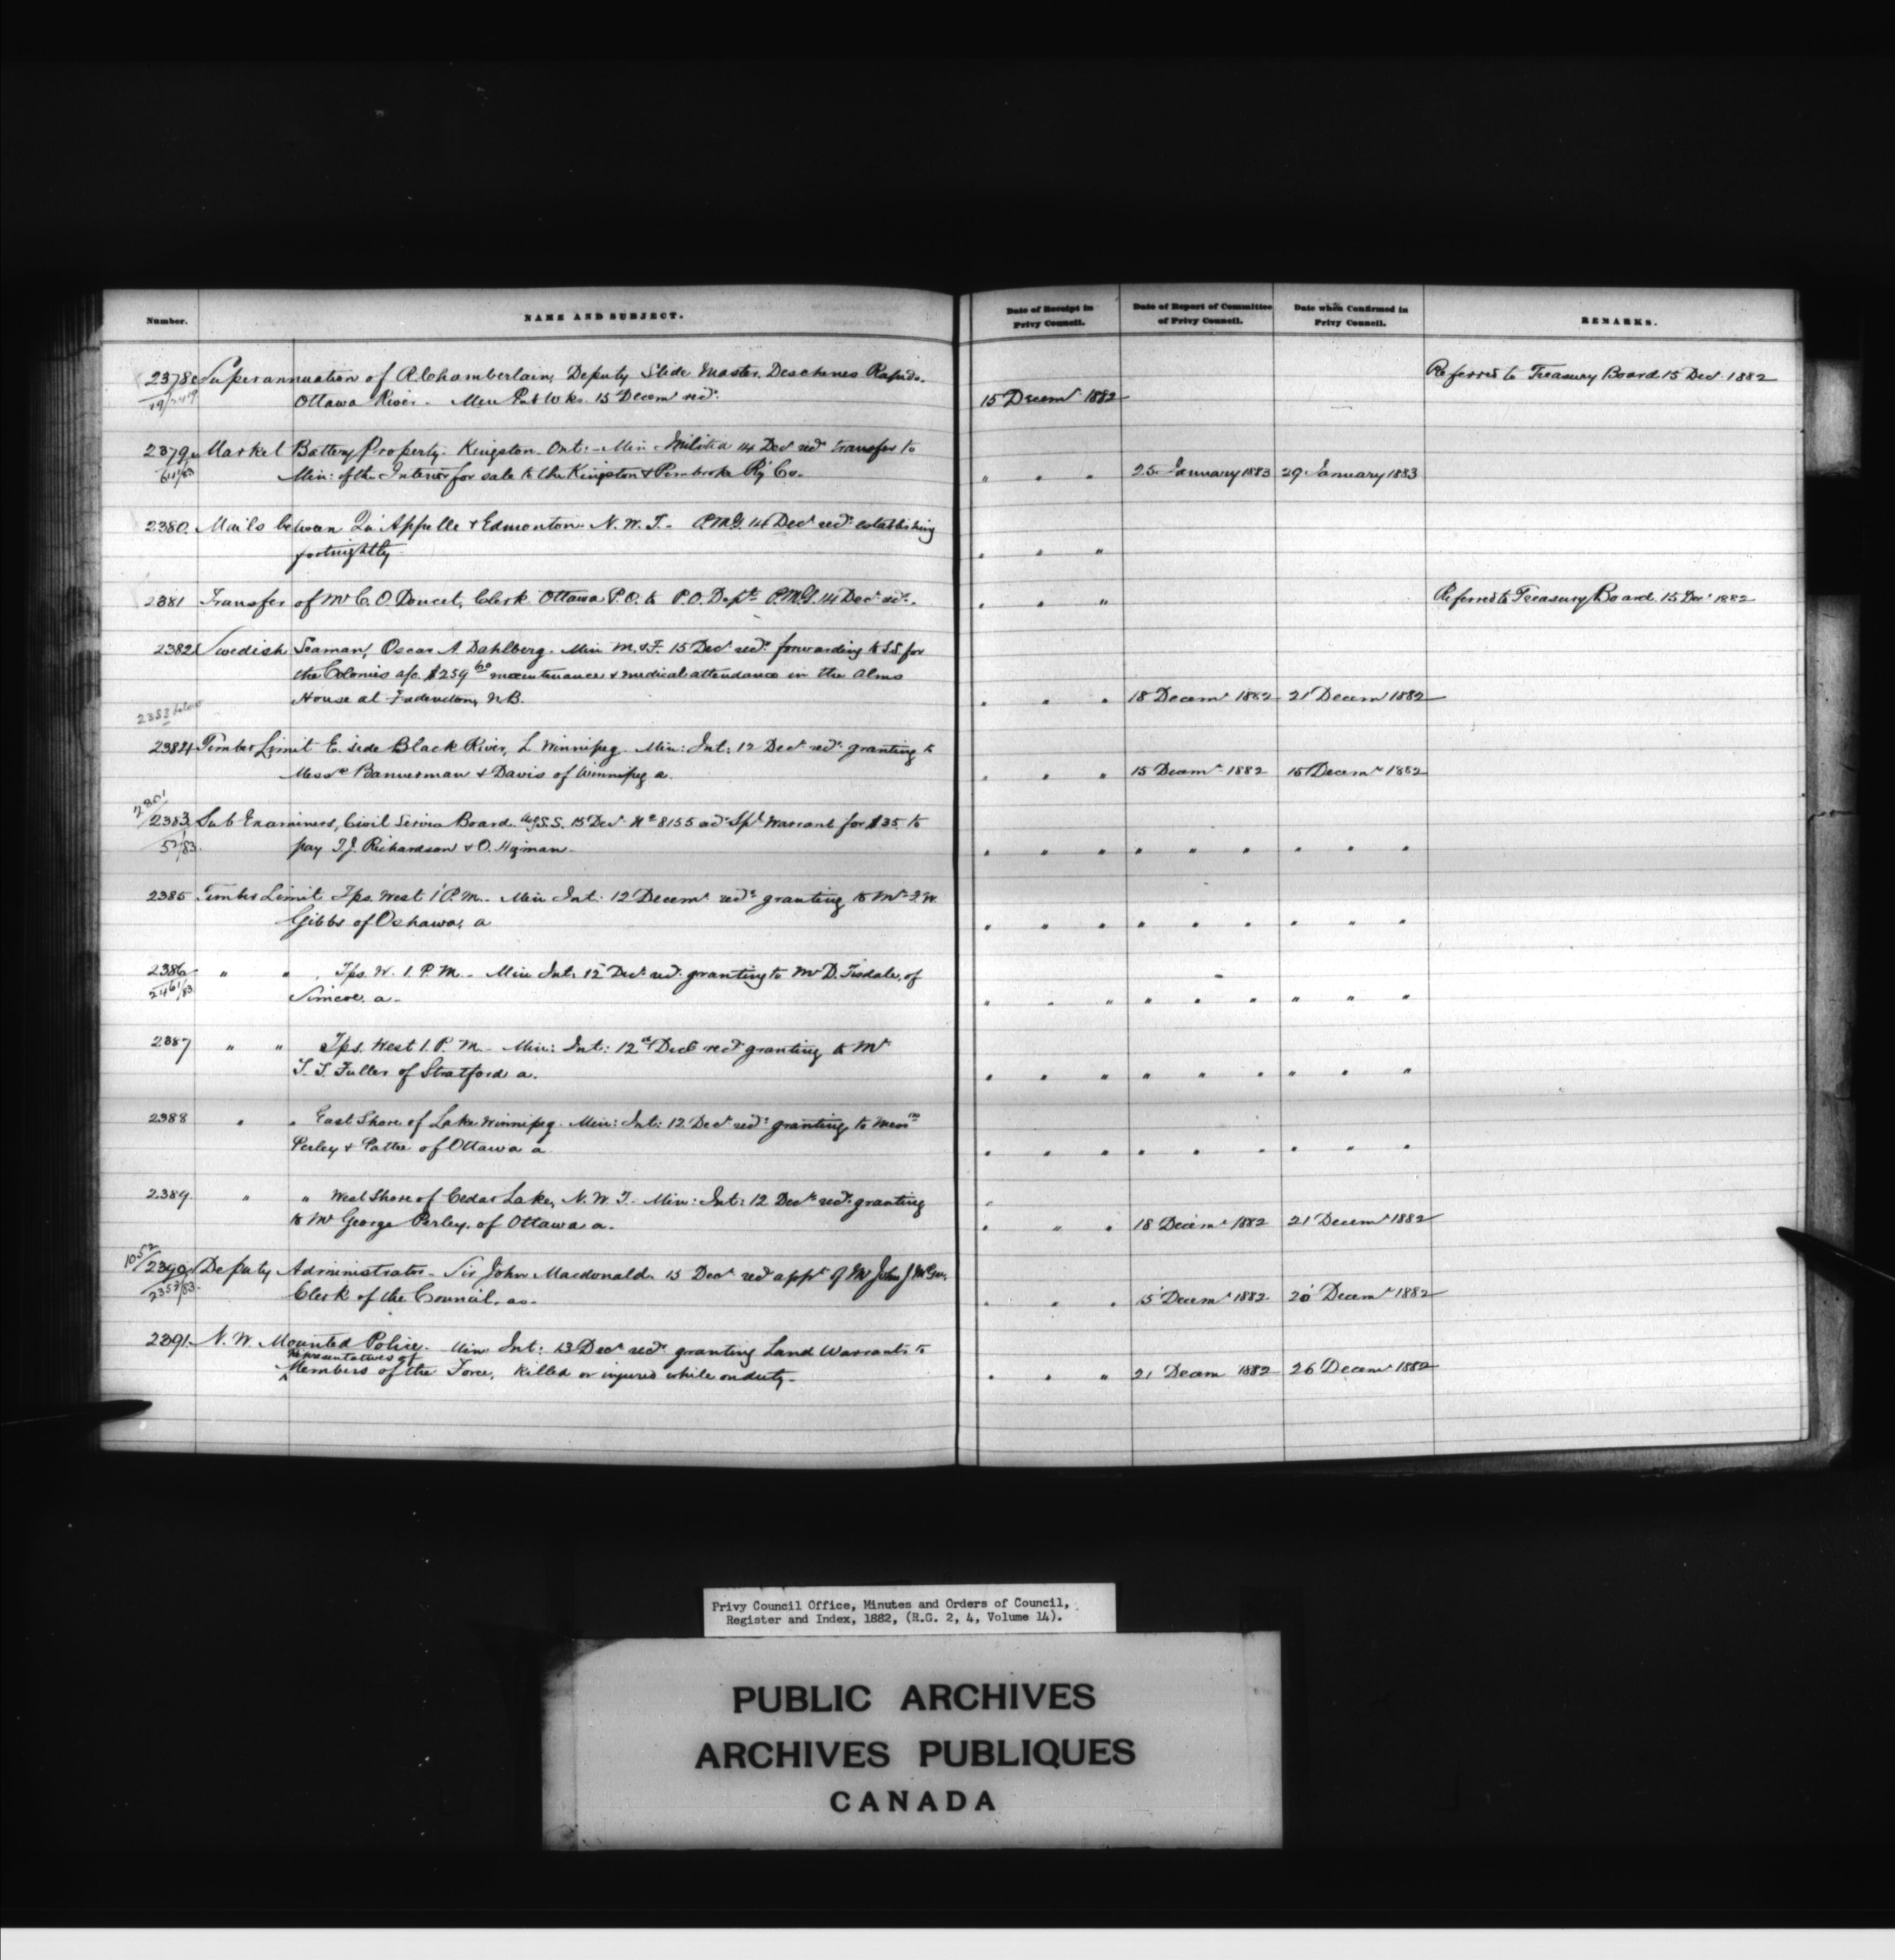 Number.
NAME AND SUBJECT.
Date of Receipt in
Privy Council.
Date of Report of Committee
of Privy Council.
Date when Confirmed in
Privy Council.
REMARKS.
2378 Superannuation of A. Chamberlain, Deputy Slide Master, Deschenes Rapids. Referred to Treasury Board 15 Decr 1882
Ottawa River. Min Pub Wks. 15 Decemr recd. 15 Decemr 1882
2379 Market Battery Property. Kingston. Ont: - Min Militia 14 Decr recds transfer to
Min: of the Interior for sale to the Kingston & Pembroke Ry Co. " " " 25 January 1883 29 January 1883
2380. Mails between Qu'Appelle & Edmonton. N.W.T. - P.M.G. 14 Decr recds establishing
fortnightly " " "
2381 Transfer of Mr C. O. Doucet, Clerk Ottawa P.O. to P.O. Dept P.M.G. 14 Decr recds. " " " Referred to Treasury Board. 15 Decr 1882
2382 Swedish Seaman, Oscar A Dahlberg. Min M. & F. 15 Decr recds forwarding to S.S. for
the Colonies a/c. $259 60 maintenance & medical attendance in the Alms
House at Fredericton, N.B. " " " 18 Decemr 1882 21 Decemr 1882
2383 below
2384 Timber Limit E. side Black River, L. Winnipeg. Min: Int: 12 Decr recds granting to
Messrs Bannerman & Davis of Winnipeg a. " " " 15 Decemr 1882 15 Decemr 1882
2383 Sub Examiners, Civil Service Board. S.S. 15 Decr No 8155 Spl Warrant for $35 to
52/83. pay T.J. Richardson & O. Hyman. " " " " " " " " "
2385 Timber Limit Tps. West 1 P.M. Min Int: 12 Decemr recds granting to Mr
Gibbs of Oshawa, a " " " " " " " " "
2386 " " Tps. W. 1. P.M. - Min Int: 12 Decr recds granting to Mr D. Tisdale, of
Simcoe, a. " " " " " " " " "
2387 " " Tps. West 1. P. M. Min: Int: 12 Decr recds granting to Mr
T. T. Fuller of Stratford a. " " " " " " " " "
2388 " " East Shore of Lake Winnipeg. Min: Int: 12 Decr recds granting to Messrs
Perley & Pattee of Ottawa a " " " " " " " " "
2389. " " West Shore of Cedar Lake, N.W.T. Min: Int: 12 Decr recds granting
to Mr George Perley, of Ottawa a. " " " 18 Decemr 1882 21 Decemr 1882
2390 Deputy Administrator. Sir John Macdonald. 15 Decr recds appt of Mr John J McGee,
Clerk of the Council, as. " " " 15 Decemr 1882 20 Decemr 1882
2391. N. W. Mounted Police. Min Int: 13 Decr recds granting Land Warrants to
Representatives of
Members of the Force, killed or injured while on duty. " " " 21 Decem 1882 26 Decemr 1882
Privy Council Office, Minutes and Orders of Council,
Register and Index, 1882, (R.G. 2, 4, Volume 14).
PUBLIC ARCHIVES
ARCHIVES PUBLIQUES
CANADA